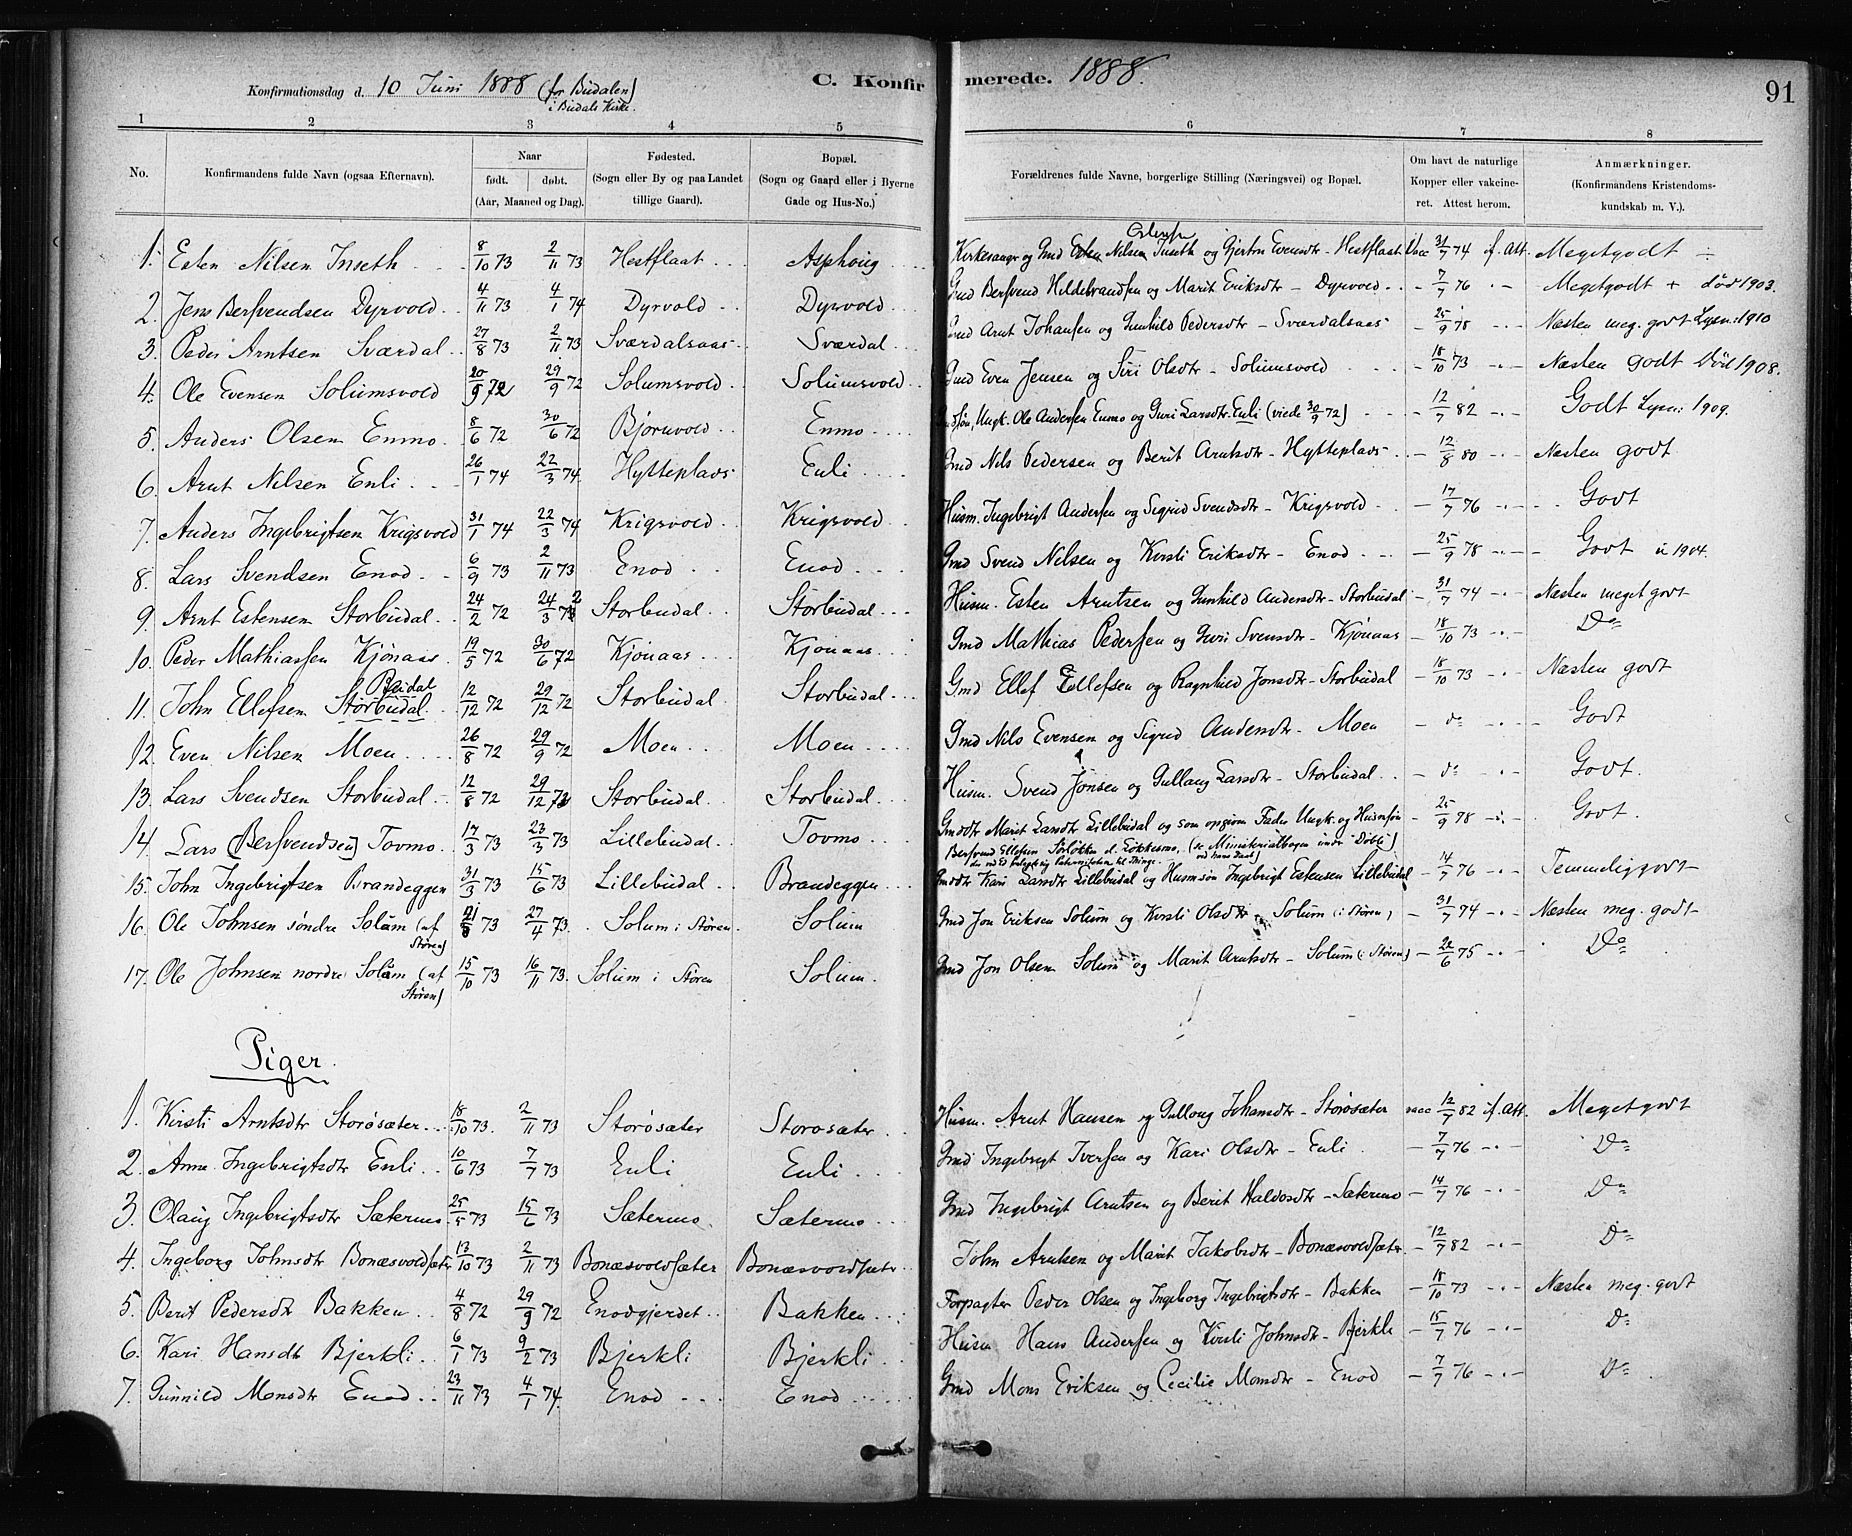 Konfirmationsdag d. 10 Juni 1888 (for Budalen)
i Budals Kirke.
C. Konfirmerede. 1888.
91
1 2 3 4 5 6 7 8
No. Konfirmandens fulde Navn (ogsaa Efternavn). Naar født. døbt. (Aar, Maaned og Dag). Fødested. (Sogn eller By og paa Landet tillige Gaard). Bopæl. (Sogn og Gaard eller i Byerne Gade og Hus-No.) Forældrenes fulde Navne, borgerlige Stilling (Næringsvei) og Bopæl. Om havt de naturlige Kopper eller vakcineret. Attest herom. Anmærkninger. (Konfirmandens Kristendomskundskab m. V.).
1. Esten Nilsen Inseth 8/10 73 2/11 73 Hestflaat Asphoug Kirkesanger og Gmd Nilsen Inseth og Gjertru Evensdtr - Hestflaat Vacc 31/7 74 if. Att. Megetgodt
2. Jens Bersvendsen Dyrvold 4/11 73 4/1 74 Dyrvold Dyrvold Gmd Bersvend Hildebrandsen og Marit Eriksdtr - Dyrvold - 7/7 76 - Megetgodt + død 1903.
3. Peder Arntsen Sværdal 27/8 73 2/11 73 Sværdalsaas Sværdal Gmd Arnt Johansen og Gunhild Pedersdtr - Sværdalsaas - 25/9 78 - Næsten meg. godt Lysn. 1910
4. Ole Evensen Solumsvold 20/9 72 29/9 72 Solumsvold Solumsvold Gmd Even Jensen og Siri Olsdtr - Solumsvold - 18/10 73 - Næsten godt Död 1908.
5. Anders Olsen Enmo 8/6 72 30/6 72 Bjørnvold Enmo Ungk. Ole Andersen Enmo og Guri Larsdtr Enli (viede 30/9 72) - 12/7 82 - Godt Lysn: 1909.
6. Arnt Nilsen Enli 26/1 74 22/3 74 Hytteplads Enli Gmd Nils Pedersen og Berit Arntsdtr - Hytteplads - 12/8 80 - Næsten godt
7. Anders Ingebrigtsen Krigsvold 31/1 74 22/3 74 Krigsvold Krigsvold Husm. Ingebrigt Andersen og Sigrid Svendsdtr - Krigsvold - 17/7 76 - Godt
8. Lars Svendsen Enod 6/9 73 2/11 73 Enod Enod Gmd Svend Nilsen og Kirsti Eriksdtr - Enod - 25/9 78 - Godt 1904.
9. Arnt Estensen Storbudal 24/2 72 24/3 72 Storbudal Storbudal Husm. Esten Arntsen og Gunhild Andersdtr - Storbudal - 31/7 74 - Næsten meget godt
10. Peder Mathiassen Kjönaas 19/5 72 30/6 72 Kjönaas Kjönaas Gmd Mathias Pedersen og Guri Svensdtr - Kjönaas - 18/10 73 - Do
11. John Ellefsen Storbudal 12/12 72 29/12 72 Storbudal Storbudal Gmd Ellef Ellefsen og Ragnhild Jonsdtr - Storbudal - 18/10 73 - Næsten godt
12. Even Nilsen Moen 26/8 72 29/9 72 Moen Moen Gmd Nils Evensen og Sigrid Andersdtr - Moen - do - Godt
13. Lars Svendsen Storbudal 12/8 72 29/12 72 Storbudal Storbudal Husm. Svend Jonsen og Gullaug Larsdtr - Storbudal - do - Godt.
14. Lars (Bersvendsen) Tovmo 17/3 73 23/3 73 Lillebudal Tovmo Gmddtr Marit Larsdtr Lillebudal og som opgiven Fader Ungk. og Husmsøn - 25/9 78 - Godt.
Bersvend Ellefsen (se Ministerialbogen under Døbte)
15. John Ingebrigtsen Brandeggen 31/3 73 15/6 73 Lillebudal Brandeggen Gmddtr Kari Larsdtr Lillebudal og Husmsøn Ingebrigt Estensen Lillebudal - 14/7 76 - Temmelig godt
16. Ole Johnsen søndre Solum (af Støren) 73 27/4 73 Solum i Støren Solum Gmd Jon Eriksen Solum og Kirsti Olsdtr - Solum (i Støren) - 31/7 74 - Næsten meg. godt
17. Ole Johnsen nordre Solum (af Støren) 15/10 73 16/11 73 Solum i Støren Solum Gmd Jon Olsen Solum og Marit Arntsdtr - Solum (i Støren) - 22/6 75 - Do
Piger.
1. Kirsti Arntsdtr Storøsæter 18/10 73 2/11 73 Storøsæter Storøsæter Husm. Arnt Hansen og Gullaug Johansdtr - Storøsæter vacc 12/7 82 if. Att. Megetgodt
2. Anne Ingebrigtsdtr Enli 10/6 73 7/7 73 Enli Enli Gmd Ingebrigt Iversen og Kari Olsdtr - Enli - 7/7 76 - Do
3. Olaug Ingebrigtsdtr Sætermo 25/5 73 15/6 73 Sætermo Sætermo Gmd Ingebrigt Arntsen og Berit Haldosdtr - Sætermo - 14/7 76 - Do
4. Ingeborg Johnsdtr Bonæsvoldsæter 13/10 73 2/11 73 Bonæsvoldsæter Bonæsvoldsæter John Arntsen og Marit Jakobsdtr - Bonæsvoldsæter - 12/7 82 - Do
5. Berit Pedersdtr Bakken 4/8 72 29/9 72 Enodgjerdet Bakken Forpagter Peder Olsen og Ingeborg Ingebrigtsdtr - Bakken - 18/10 73 - Næsten meg. godt
6. Kari Hansdtr Bjerkli 6/1 73 9/2 73 Bjerkli Bjerkli Husm Hans Andersen og Kirsti Johnsdtr - Bjerkli - 15/7 76 - Do
7. Gunnild Monsdtr Enod 23/11 73 4/1 74 Enod Enod Gmd Mons Eriksen og Cecilie Monsdtr - Enod - 7/7 76 - Do